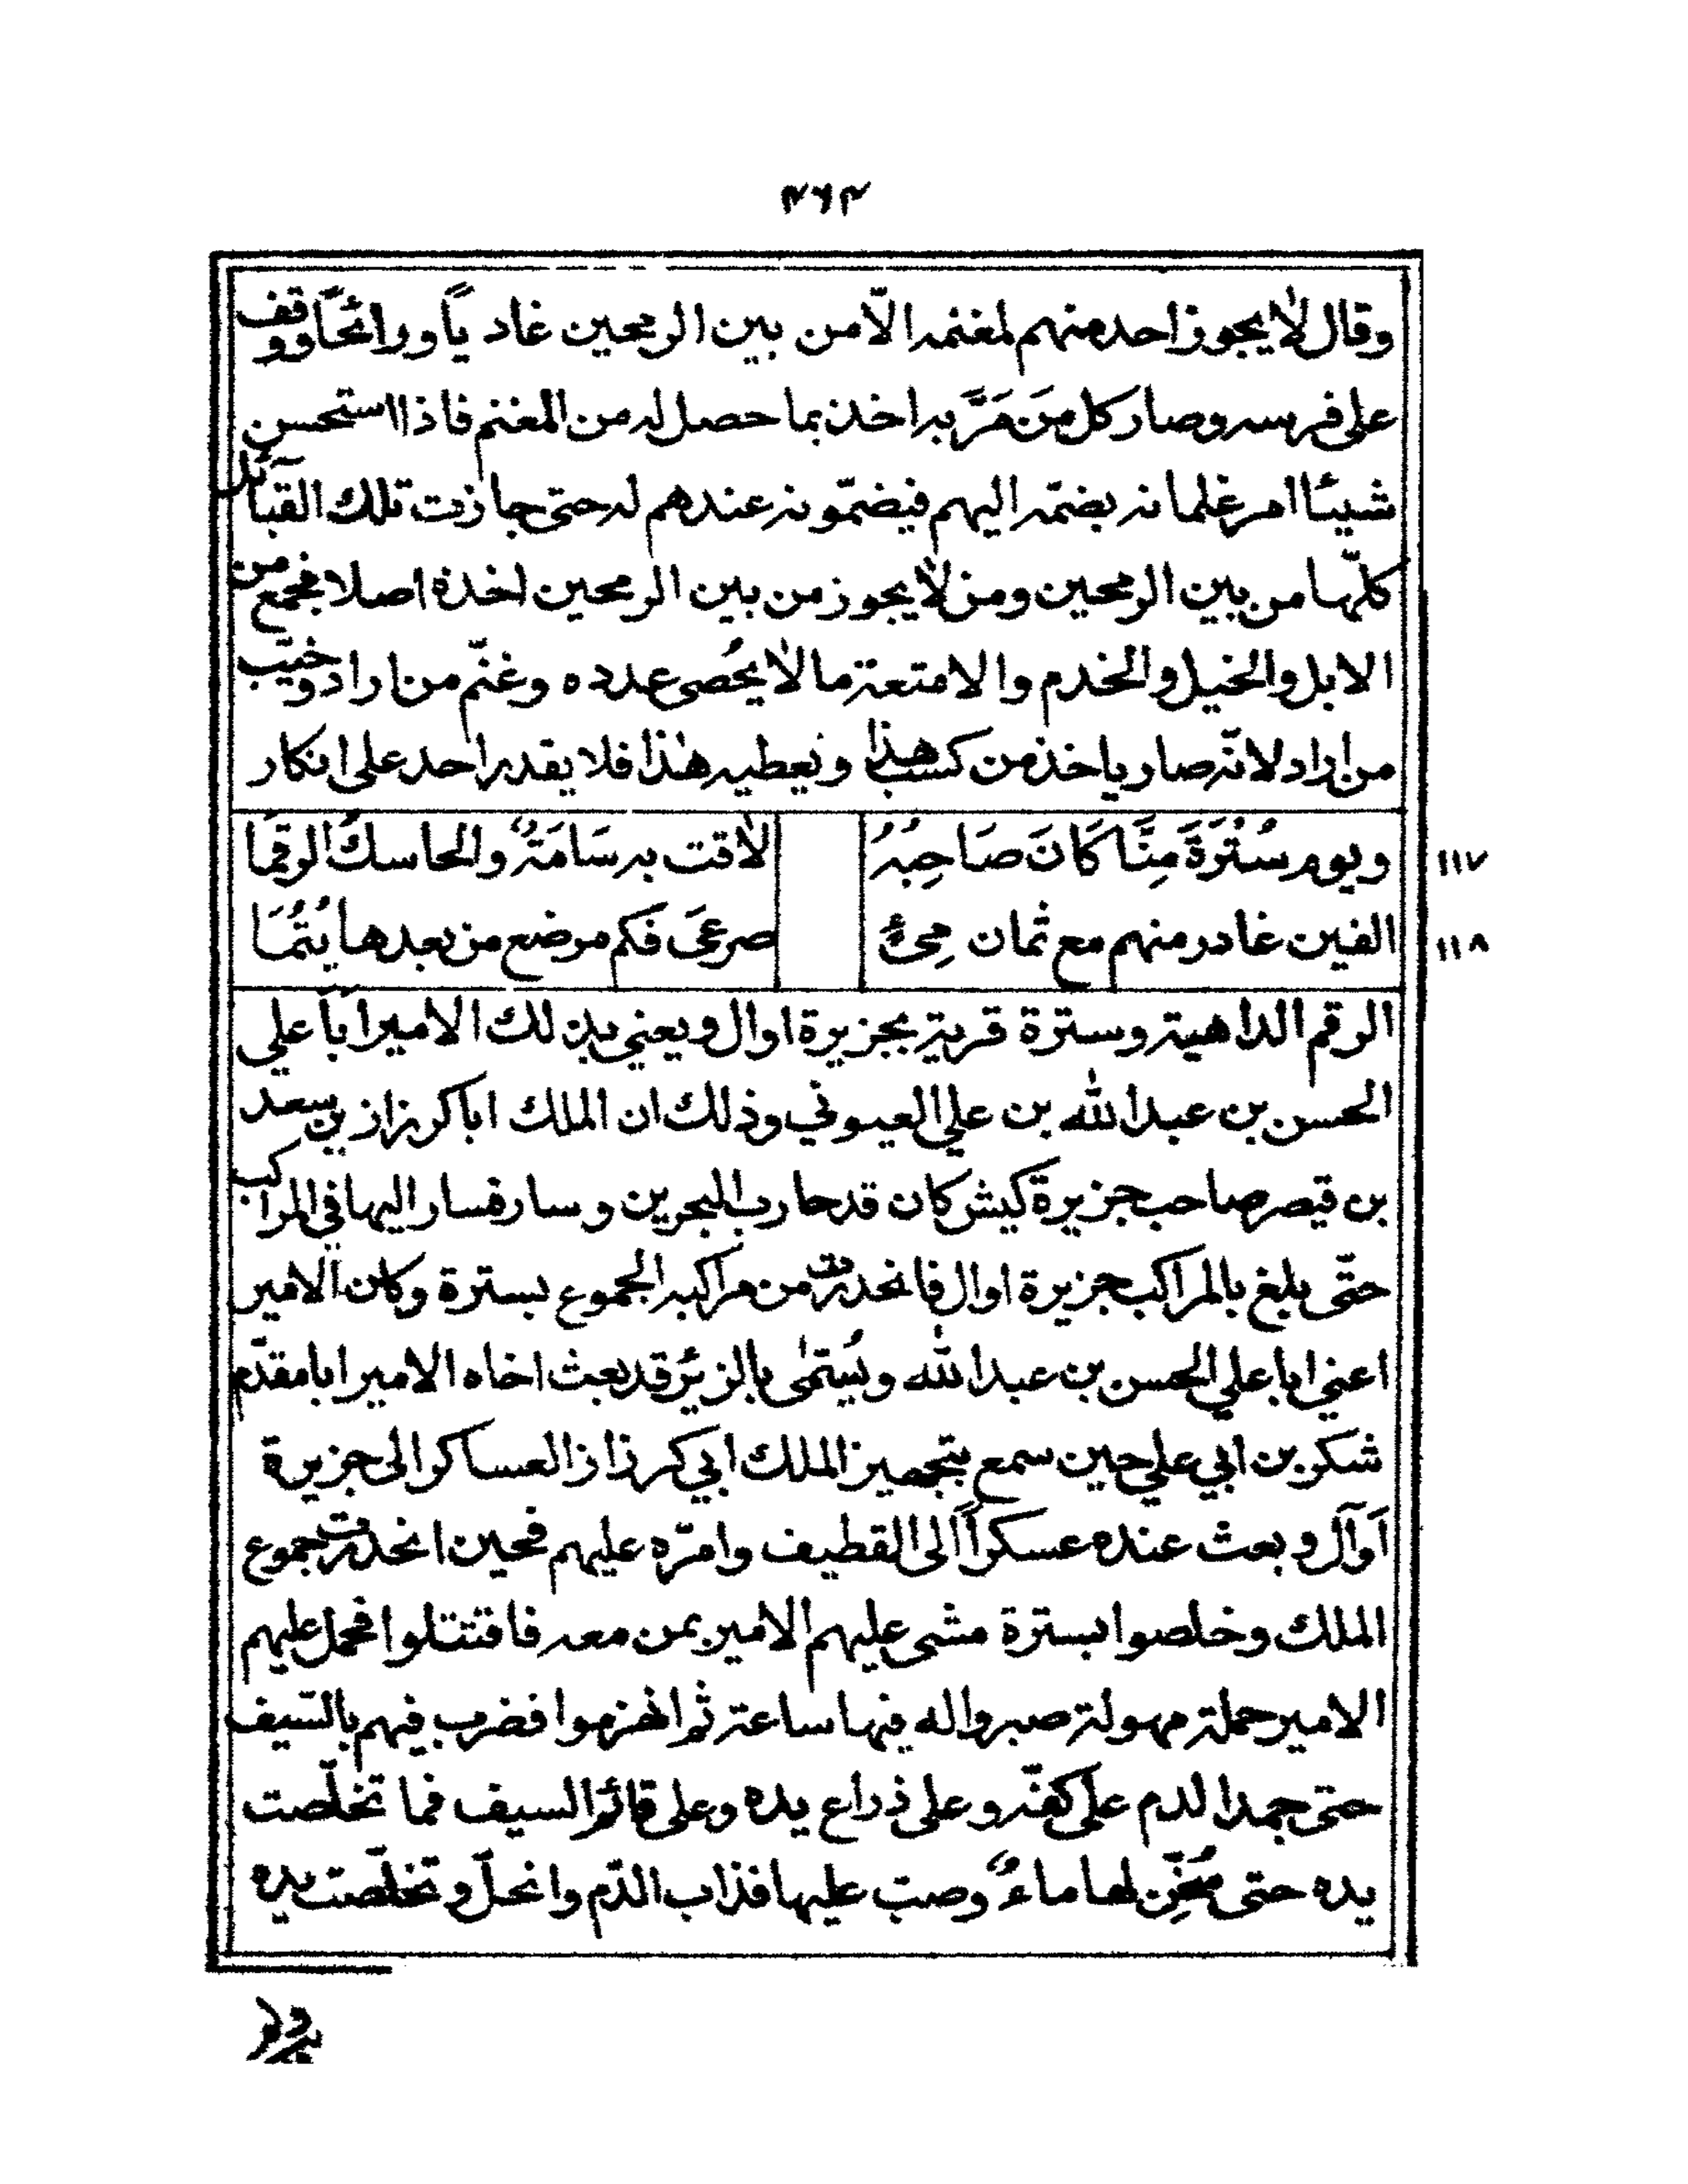 ٤٦٤
وقال لا يجوز احد منهم لمغنمه الّا من بين الرمحين غاد ياً ورائحاً ووقف
على فرسه وصار كل مَن مَرَّ به اخذ بما حصل له من المغنم فاذا استحسن
شيئا امر غلمانه بضمّه اليهم فيضمّونه عندهم له حتى جازت تلك القبآئل
كلّها من بين الرمحين ومن لا يجوز من بين الرمحين اخذه اصلا فجمع من
الابل والخيل والخدم والامتعة ما لا يُحصى عدده وغنّم من اراد وخيّب
من اراد لانّه صار ياخذ من كسب هذا ويعطيه هٰذا فلا يقدر احد على انكار
١١٧ ويوم سُتْرَةَ مِنَّا كَانَ صَاحِبُهُ لاقت به سَامَةٌ والحاسكُ الرقِمَا
١١٨ الفين غادر منهم مع ثمان مِئٍ صرعىَ فكم مرضع من بعدها يُتُمَا
الرقم الداهية وسترة قرية بجزيرة اوال ويعني بذلك الامير اَباَ علي
الحسن بن عبد الله بن علي العيوني وذلك ان الملك ابا كرزاز بن سعد
بن قيصر صاحب جزيرة كيش كان قد حارب البحرين وسار فسار اليها في المراكب
حتّى بلغ بالمراكب جزيرة اوال فانحدرت من مراكبه الجموع بسترة وكان الامير
اعني ابا علي الحسن بن عبد الله ويُسمّٰى بالزير قد بعث اخاه الامير ابا مقدّم
شكر بن ابي علي حين سمع بتجهيز الملك ابي كرزاز العساكر الى جزيرة
اَوآل وبعث عنده عسكراً الى القطيف وامّره عليهم فحين انحدرت جموع
الملك وخلصوا بسترة مشى عليهم الامير بمن معه فاقتتلوا فحمل عليهم
الامير حملة مهولة صبروا له فيها ساعة ثم انهزموا فضرب فيهم بالسّيف
حتى جمد الدم على كفّه وعلى ذراع يده وعلى قائم السيف فما تخلّصت
يده حتى سُخِّن لها ماءٌ وصبّ عليها فذاب الدّم وانحلّ وتخلّصت يده